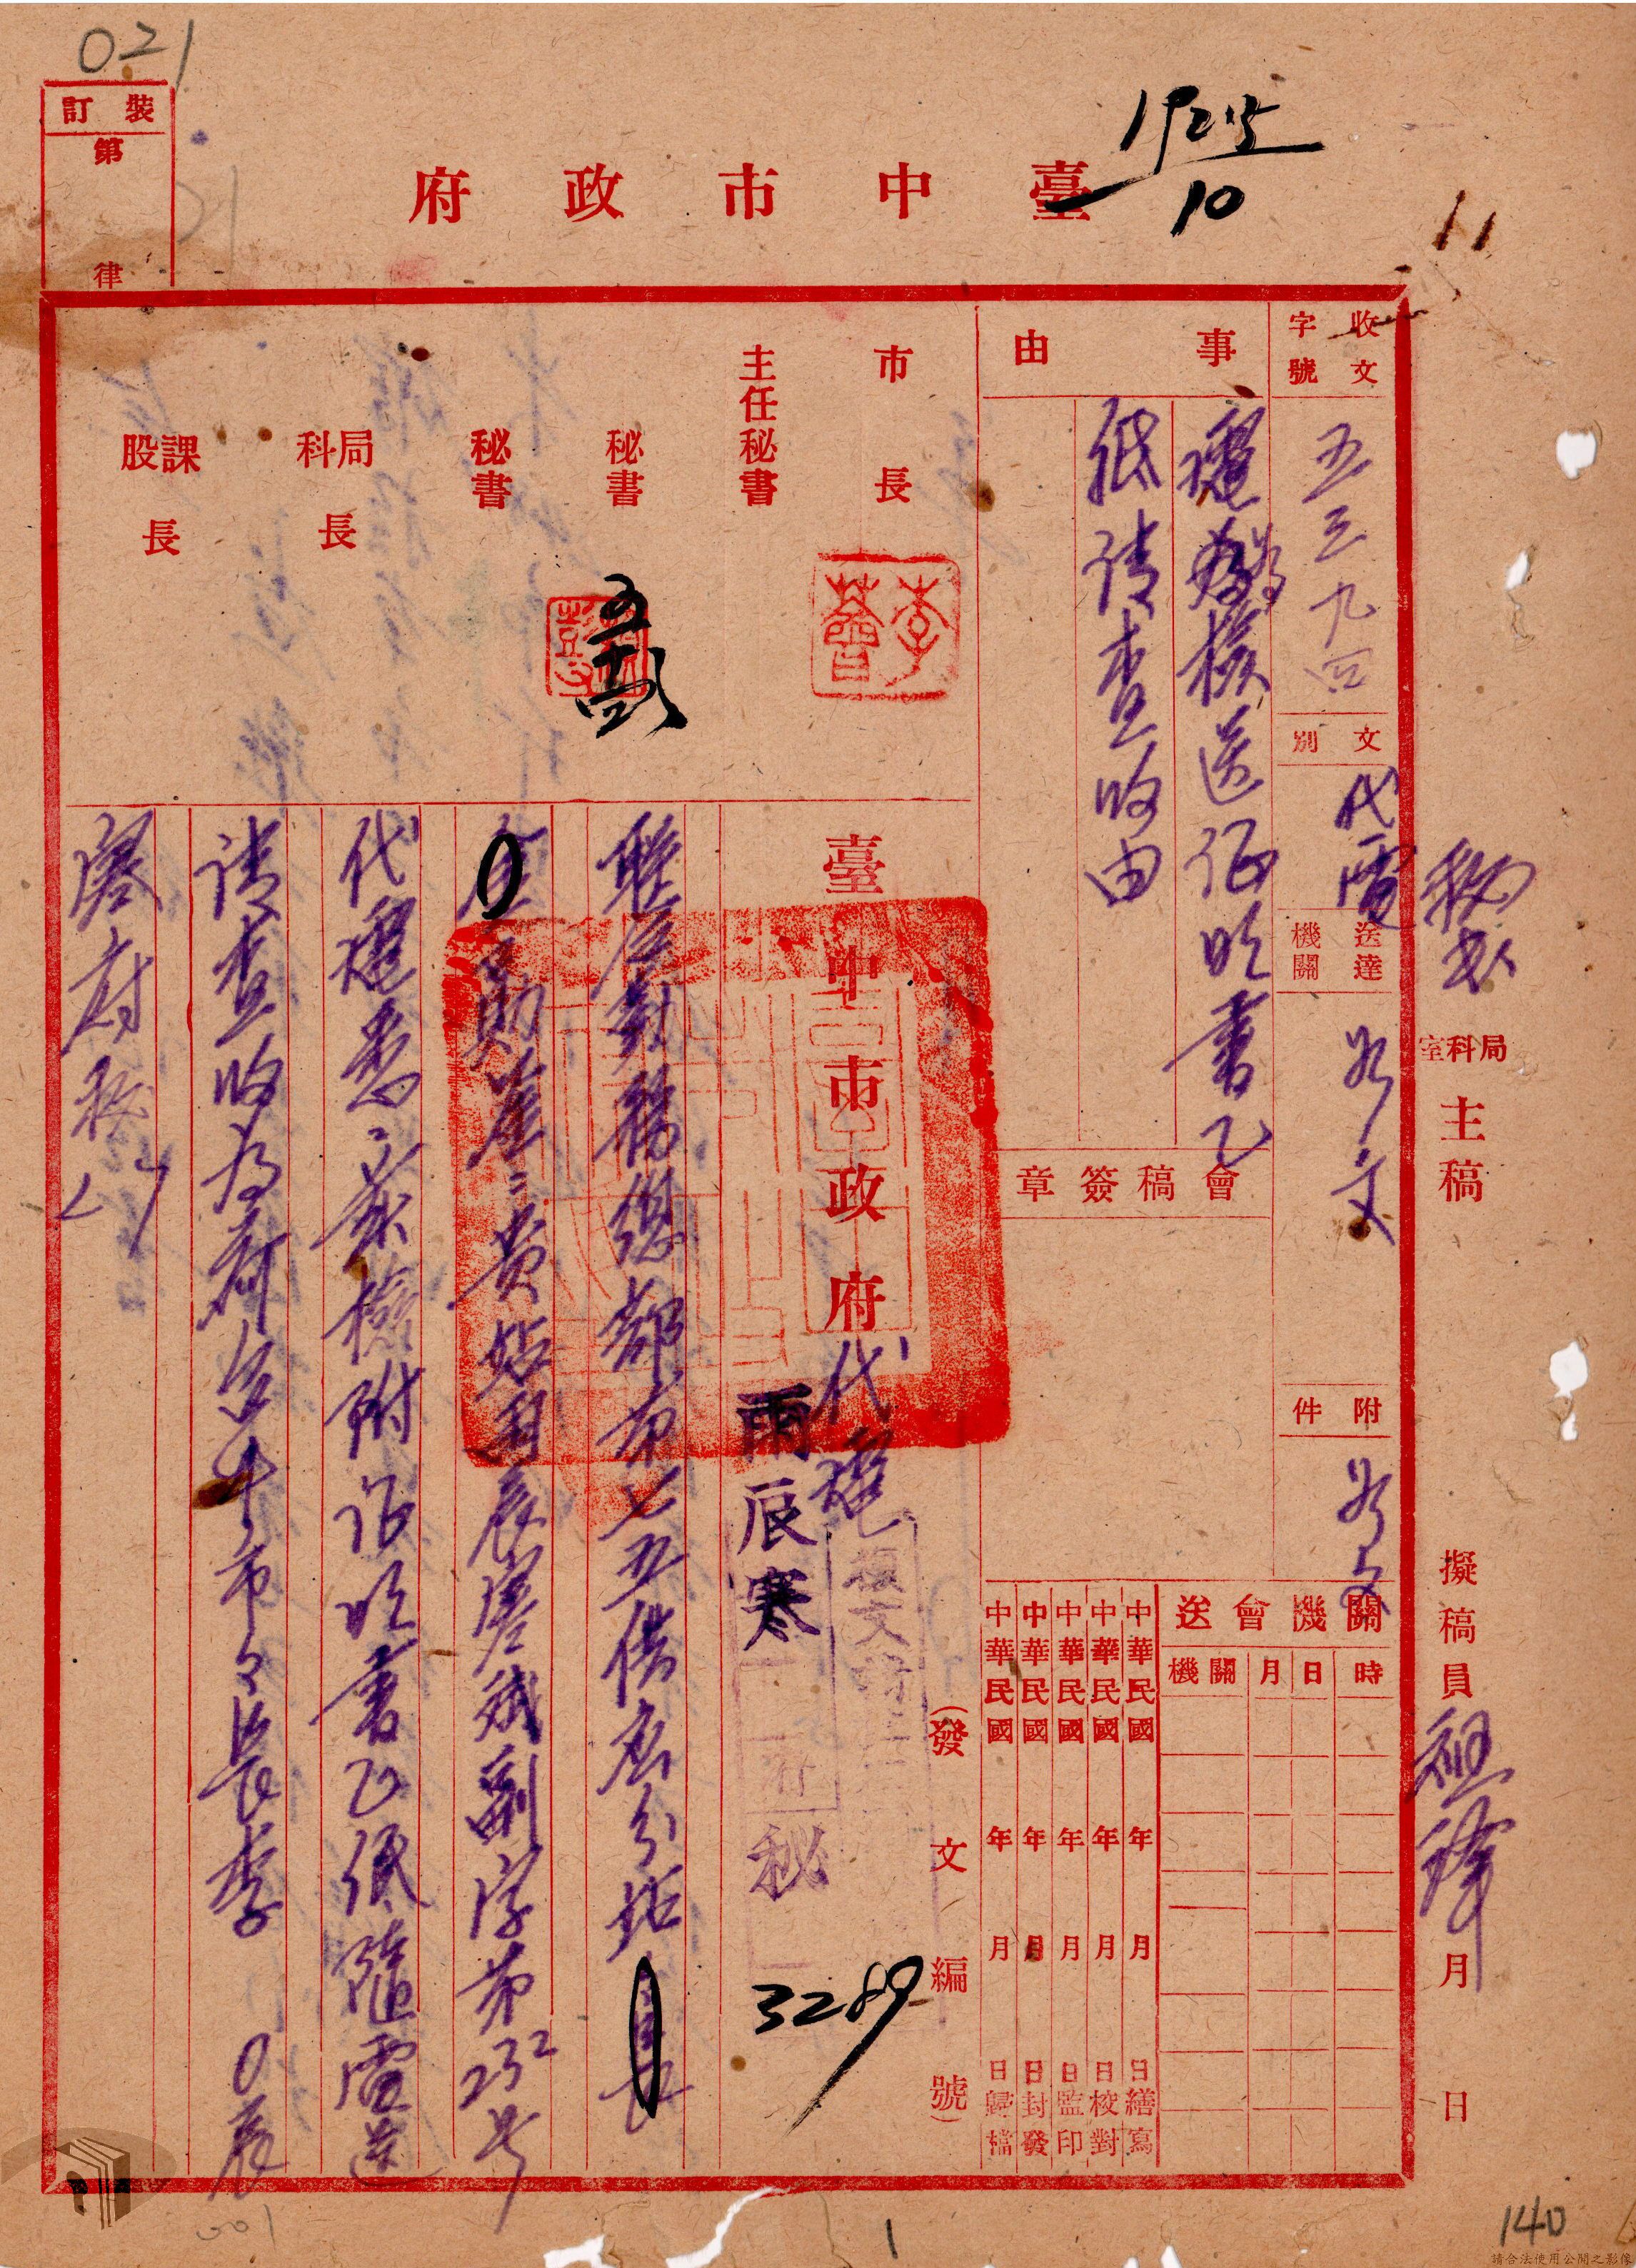 021
裝訂
第
律
1925
10
11
臺中市政府
收文字號
五三九四
文別
代電
送達機關
如文
附件
如文
秘書
局科室
主稿
擬稿員
月
日
事由
電為核送証明書乙
紙請查收由
會稿簽章
關機會送
時
日
月
關機
中華民國 年 月 日繕寫
中華民國 年 月 日校對
中華民國 年 月 日監印
中華民國 年 月 日封發
中華民國 年 月 日歸檔
(發文編號)
市長
李薈
主任秘書
秘書
秘書
局科長
課股長
臺中市政府代電
雨辰寒
秘
3289
聯勤總部第七五供應分站
貴站
辰 誠副字第232号
代電悉茲檢附証明書乙紙隨電送
請查收為荷台中市市長李 辰
寒府秘
140
1
請合法使用公開之影像